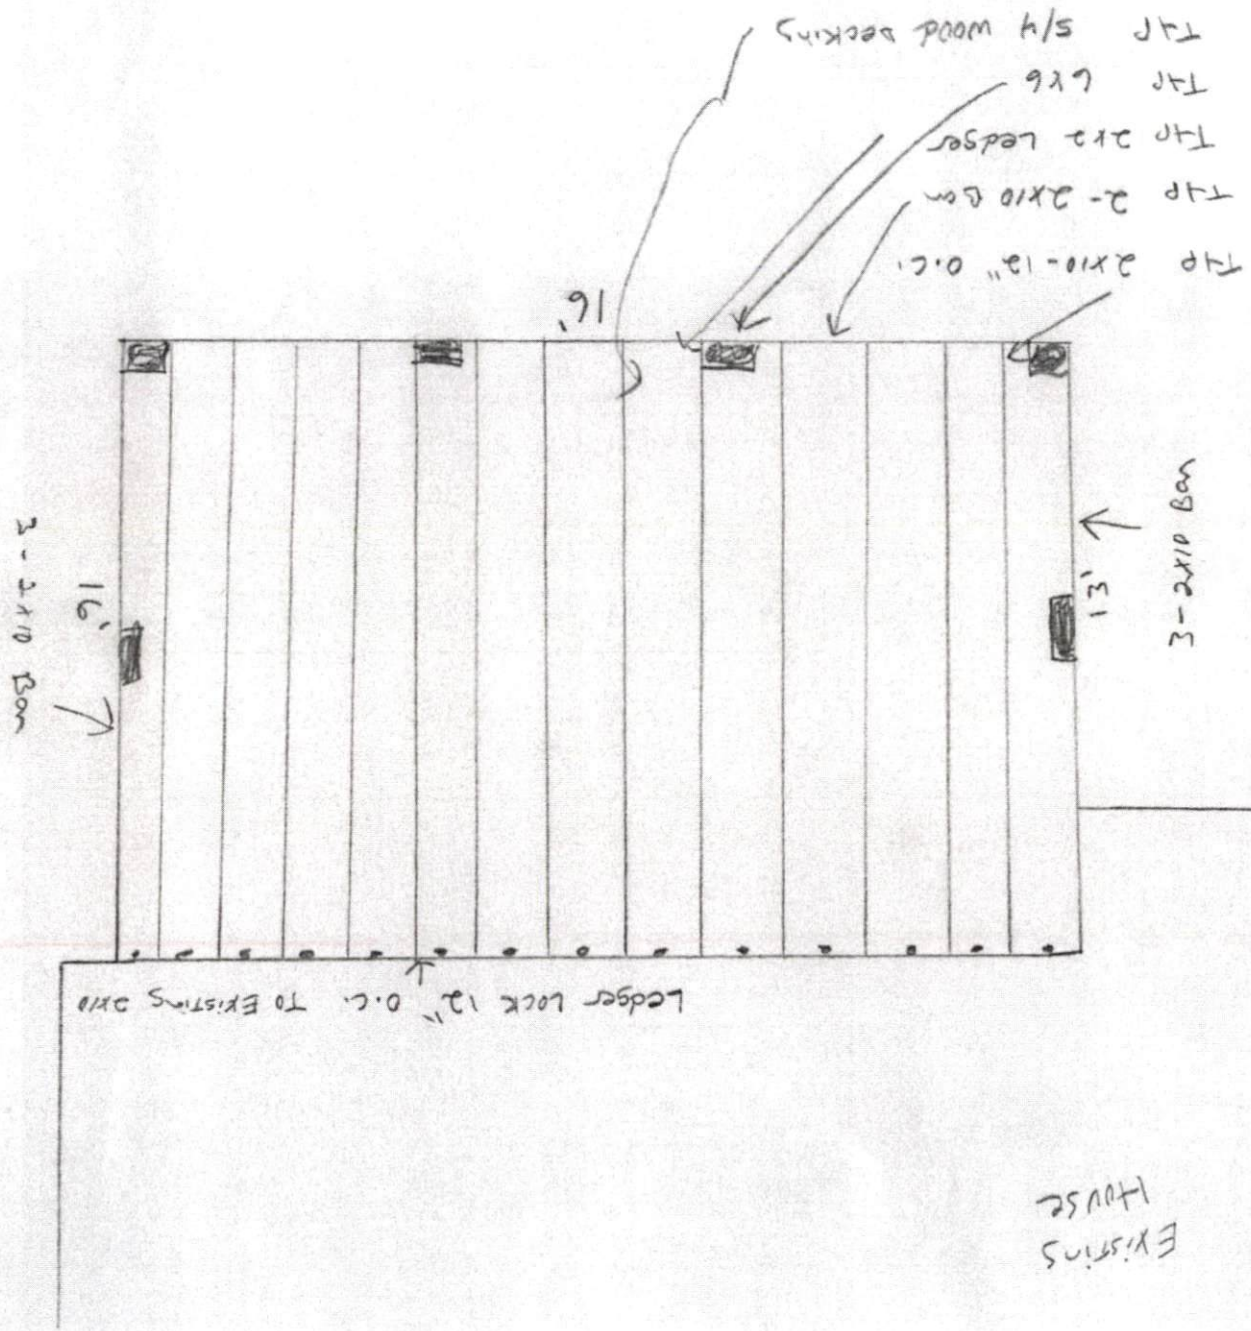 Existing
House
Ledger Lock 12" O.C. TO Existing 2x10
3-2x10 Ban
13'
16'
3-2x10 Ban
16'
Typ 2x10-12" O.C.
Typ 2-2x10 Ban
Typ 2x2 Ledger
Typ 6x6
Typ 5/4 wood Decking